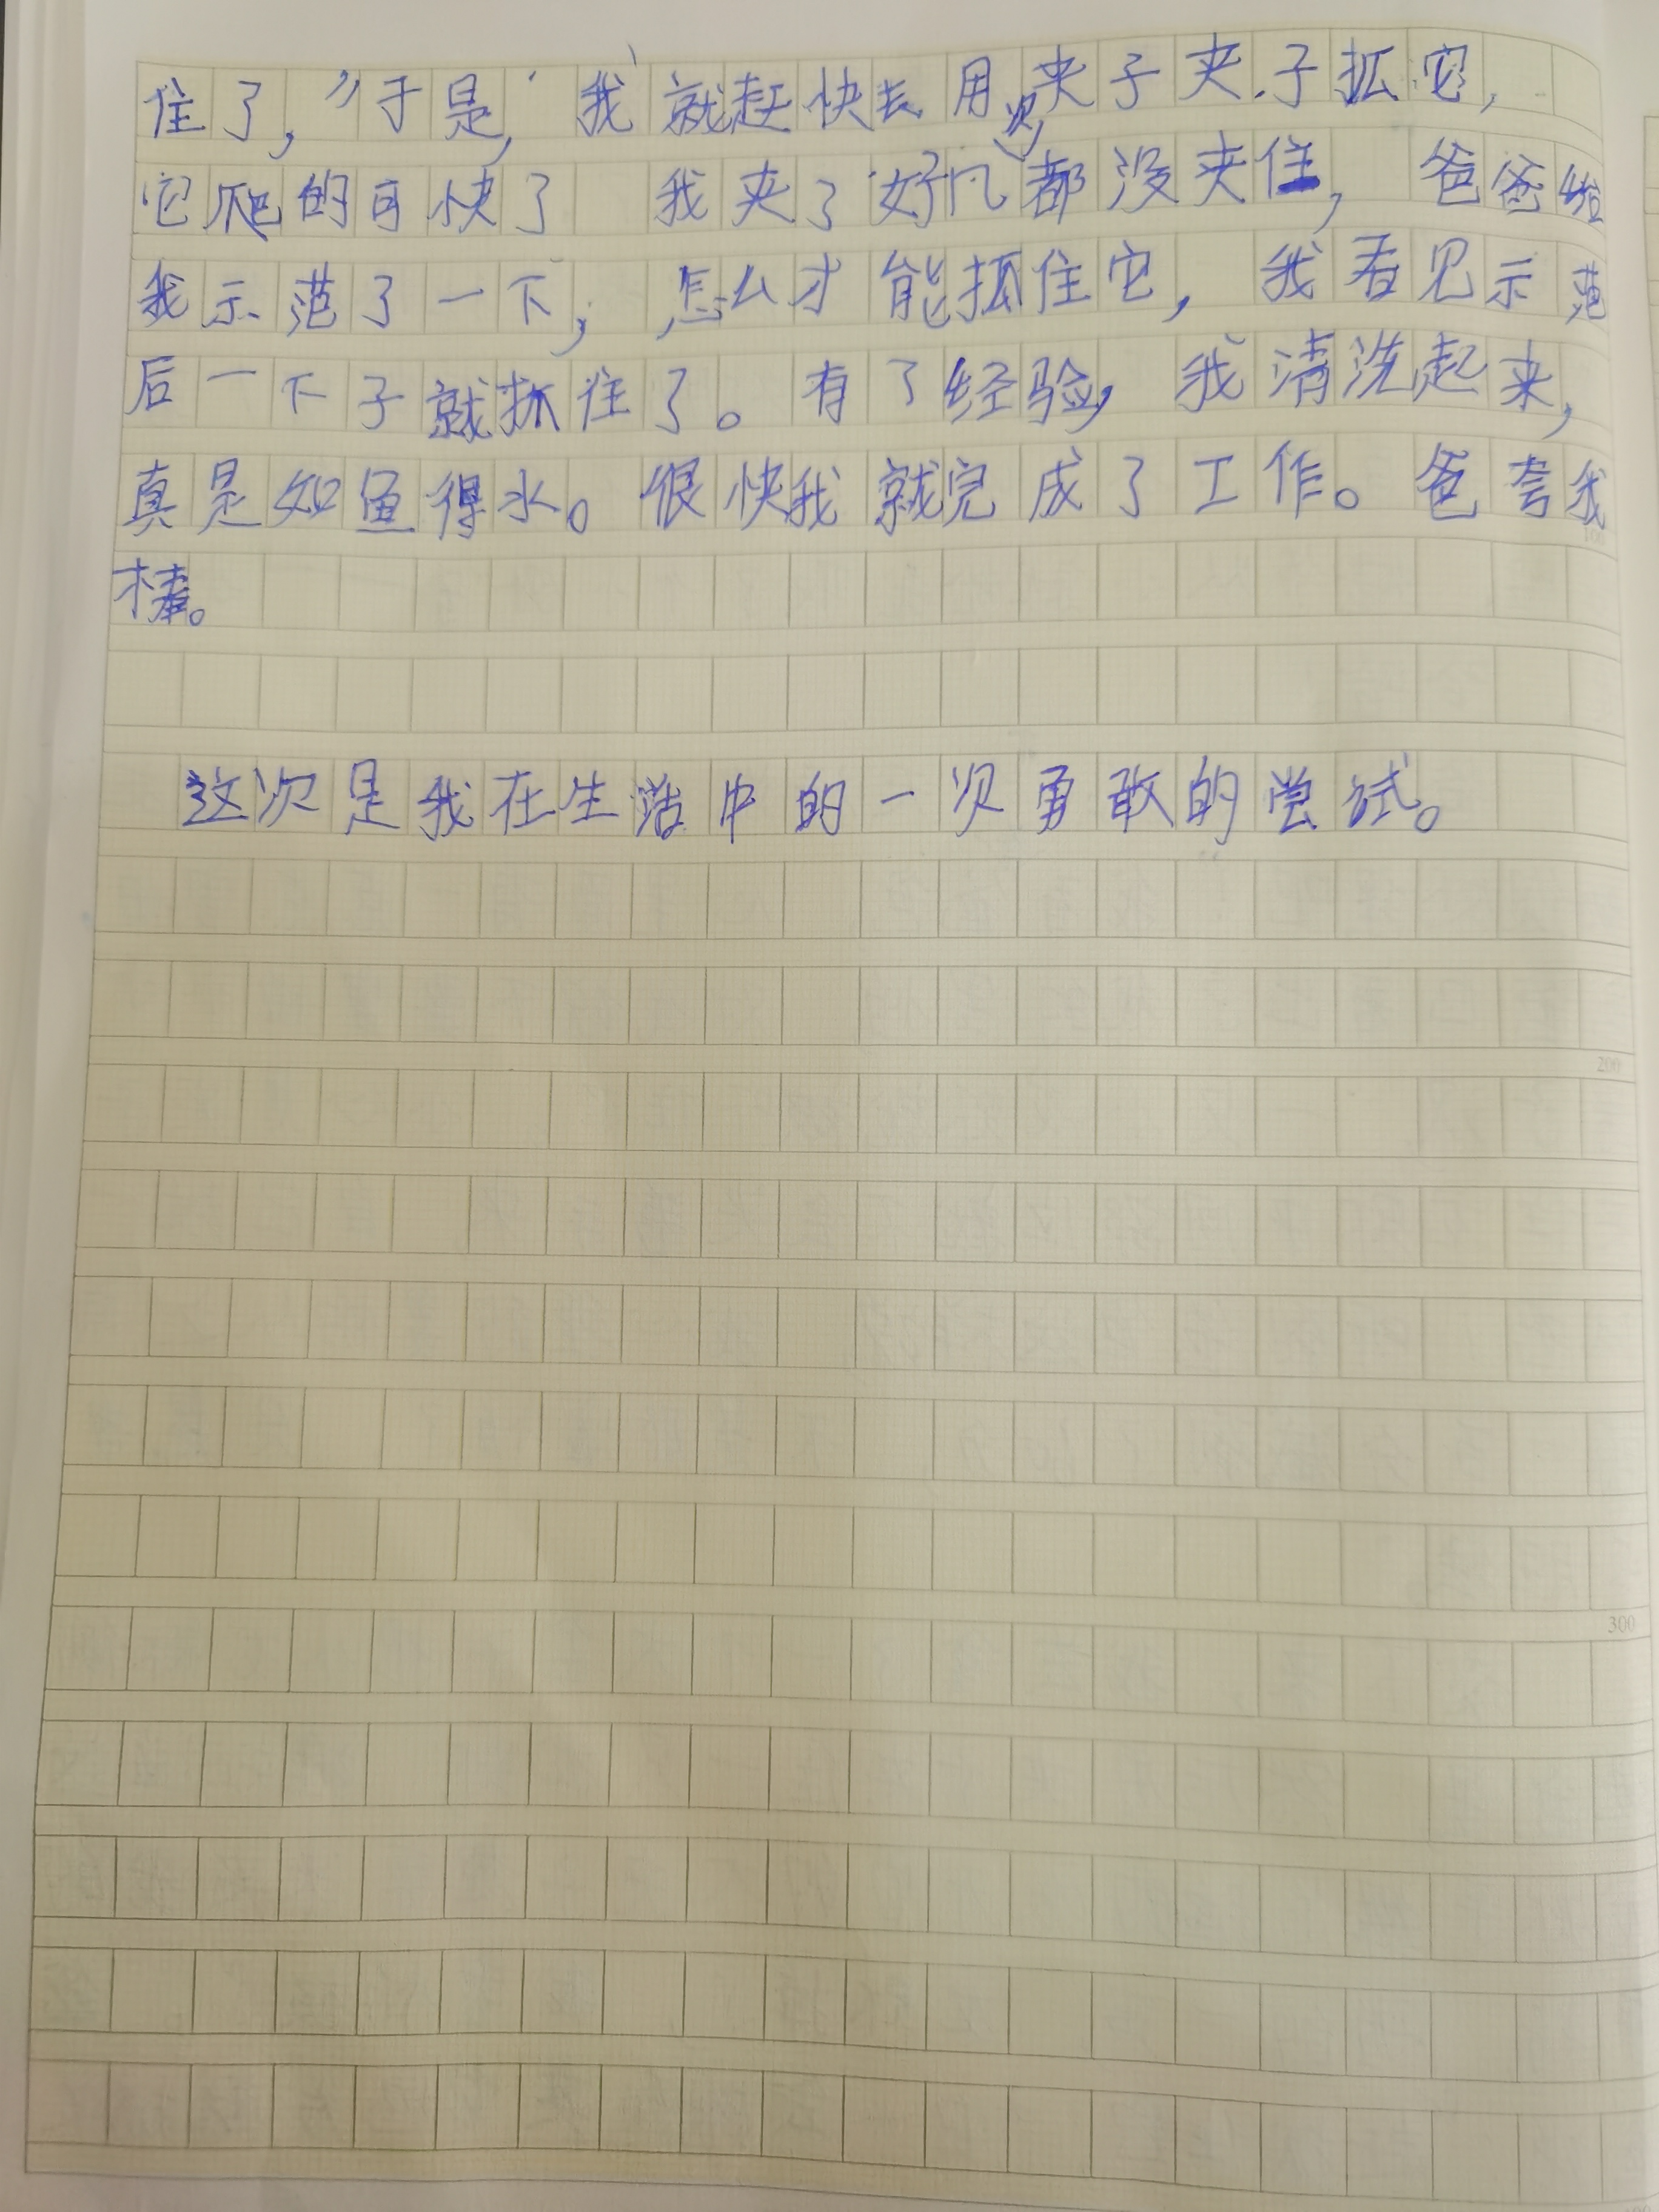 住了，”于是，我就赶快去用夹子夹子抓它，
它爬的可快了 我夹了好几次都没夹住，爸爸给
我示范了一下，怎么才能抓住它，我看见示范
后一下子就抓住了。有了经验，我清洗起来，
真是如鱼得水。很快我就完成了工作。爸夸我
100
棒。
这次是我在生活中的一次勇敢的尝试。
200
300